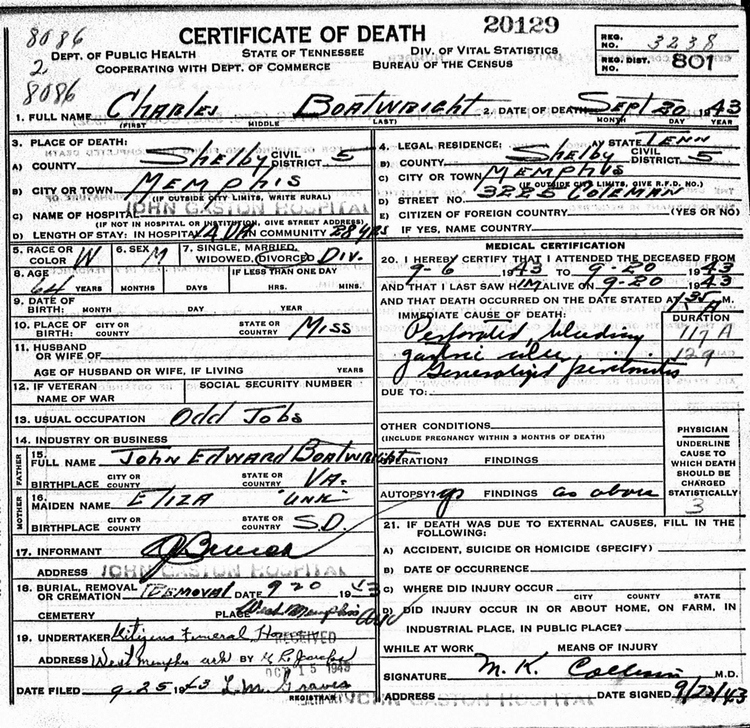 8086
2
8086
CERTIFICATE OF DEATH
20129
DEPT. OF PUBLIC HEALTH STATE OF TENNESSEE DIV. OF VITAL STATISTICS
COOPERATING WITH DEPT. OF COMMERCE BUREAU OF THE CENSUS
REG. NO. 3238
REG. DIST. 801
1. FULL NAME Charles Boatwright 2. DATE OF DEATH Sept 20 1943
(FIRST) MIDDLE LAST) MONTH DAY YEAR
3. PLACE OF DEATH:
A) COUNTY Shelby CIVIL DISTRICT 5
B) CITY OR TOWN Memphis
(IF OUTSIDE CITY LIMITS, WRITE RURAL)
C) NAME OF HOSPITAL JOHN GASTON HOSPITAL
(IF NOT IN HOSPITAL OR INSTITUTION, GIVE STREET ADDRESS)
D) LENGTH OF STAY: IN HOSPITAL IN COMMUNITY 28 yrs
4. LEGAL RESIDENCE: A) STATE Tenn
B) COUNTY Shelby CIVIL DISTRICT 5
C) CITY OR TOWN Memphis
(IF OUTSIDE CITY LIMITS, GIVE R.F.D. NO.)
D) STREET NO. 3225 Coleman
E) CITIZEN OF FOREIGN COUNTRY (YES OR NO)
IF YES, NAME COUNTRY
5. RACE OR COLOR W 6. SEX M 7. SINGLE, MARRIED, WIDOWED, DIVORCED Div.
8. AGE 64 YEARS MONTHS DAYS IF LESS THAN ONE DAY HRS. MINS.
9. DATE OF BIRTH: MONTH DAY YEAR
10. PLACE OF BIRTH: CITY OR COUNTY STATE OR COUNTRY Miss
11. HUSBAND OR WIFE OF
AGE OF HUSBAND OR WIFE, IF LIVING YEARS
12. IF VETERAN NAME OF WAR SOCIAL SECURITY NUMBER
13. USUAL OCCUPATION Odd Jobs
14. INDUSTRY OR BUSINESS
FATHER
15. FULL NAME John Edward Boatwright
BIRTHPLACE CITY OR COUNTY STATE OR COUNTRY Va.
MOTHER
16. MAIDEN NAME Eliza "Unk"
BIRTHPLACE CITY OR COUNTY STATE OR COUNTRY S.D.
17. INFORMANT
ADDRESS JOHN GASTON HOSPITAL
18. BURIAL, REMOVAL OR CREMATION Removal DATE 9 20 1943
CEMETERY PLACE West Memphis Ark
19. UNDERTAKER Citizens Funeral Home
RECEIVED
ADDRESS West Memphis Ark BY
OCT 15 1943
DATE FILED 9-25 1943 L.M. Graves
REGISTRAR
MEDICAL CERTIFICATION
20. I HEREBY CERTIFY THAT I ATTENDED THE DECEASED FROM
9-6 1943 TO 9-20 1943
AND THAT I LAST SAW HIM ALIVE ON 9-20 1943
AND THAT DEATH OCCURRED ON THE DATE STATED AT M.
IMMEDIATE CAUSE OF DEATH: DURATION
Perforated, bleeding 117 A
gastric ulcer 129
Generalized peritonitis
DUE TO:
OTHER CONDITIONS
(INCLUDE PREGNANCY WITHIN 3 MONTHS OF DEATH)
OPERATION? FINDINGS
AUTOPSY? FINDINGS as above
PHYSICIAN
UNDERLINE
CAUSE TO
WHICH DEATH
SHOULD BE
CHARGED
STATISTICALLY
3
21. IF DEATH WAS DUE TO EXTERNAL CAUSES, FILL IN THE FOLLOWING:
A) ACCIDENT, SUICIDE OR HOMICIDE (SPECIFY)
B) DATE OF OCCURRENCE
C) WHERE DID INJURY OCCUR
CITY COUNTY STATE
D) DID INJURY OCCUR IN OR ABOUT HOME, ON FARM, IN
INDUSTRIAL PLACE, IN PUBLIC PLACE?
WHILE AT WORK MEANS OF INJURY
SIGNATURE M. K. M.D.
ADDRESS JOHN GASTON HOSPITAL DATE SIGNED 9/22/43